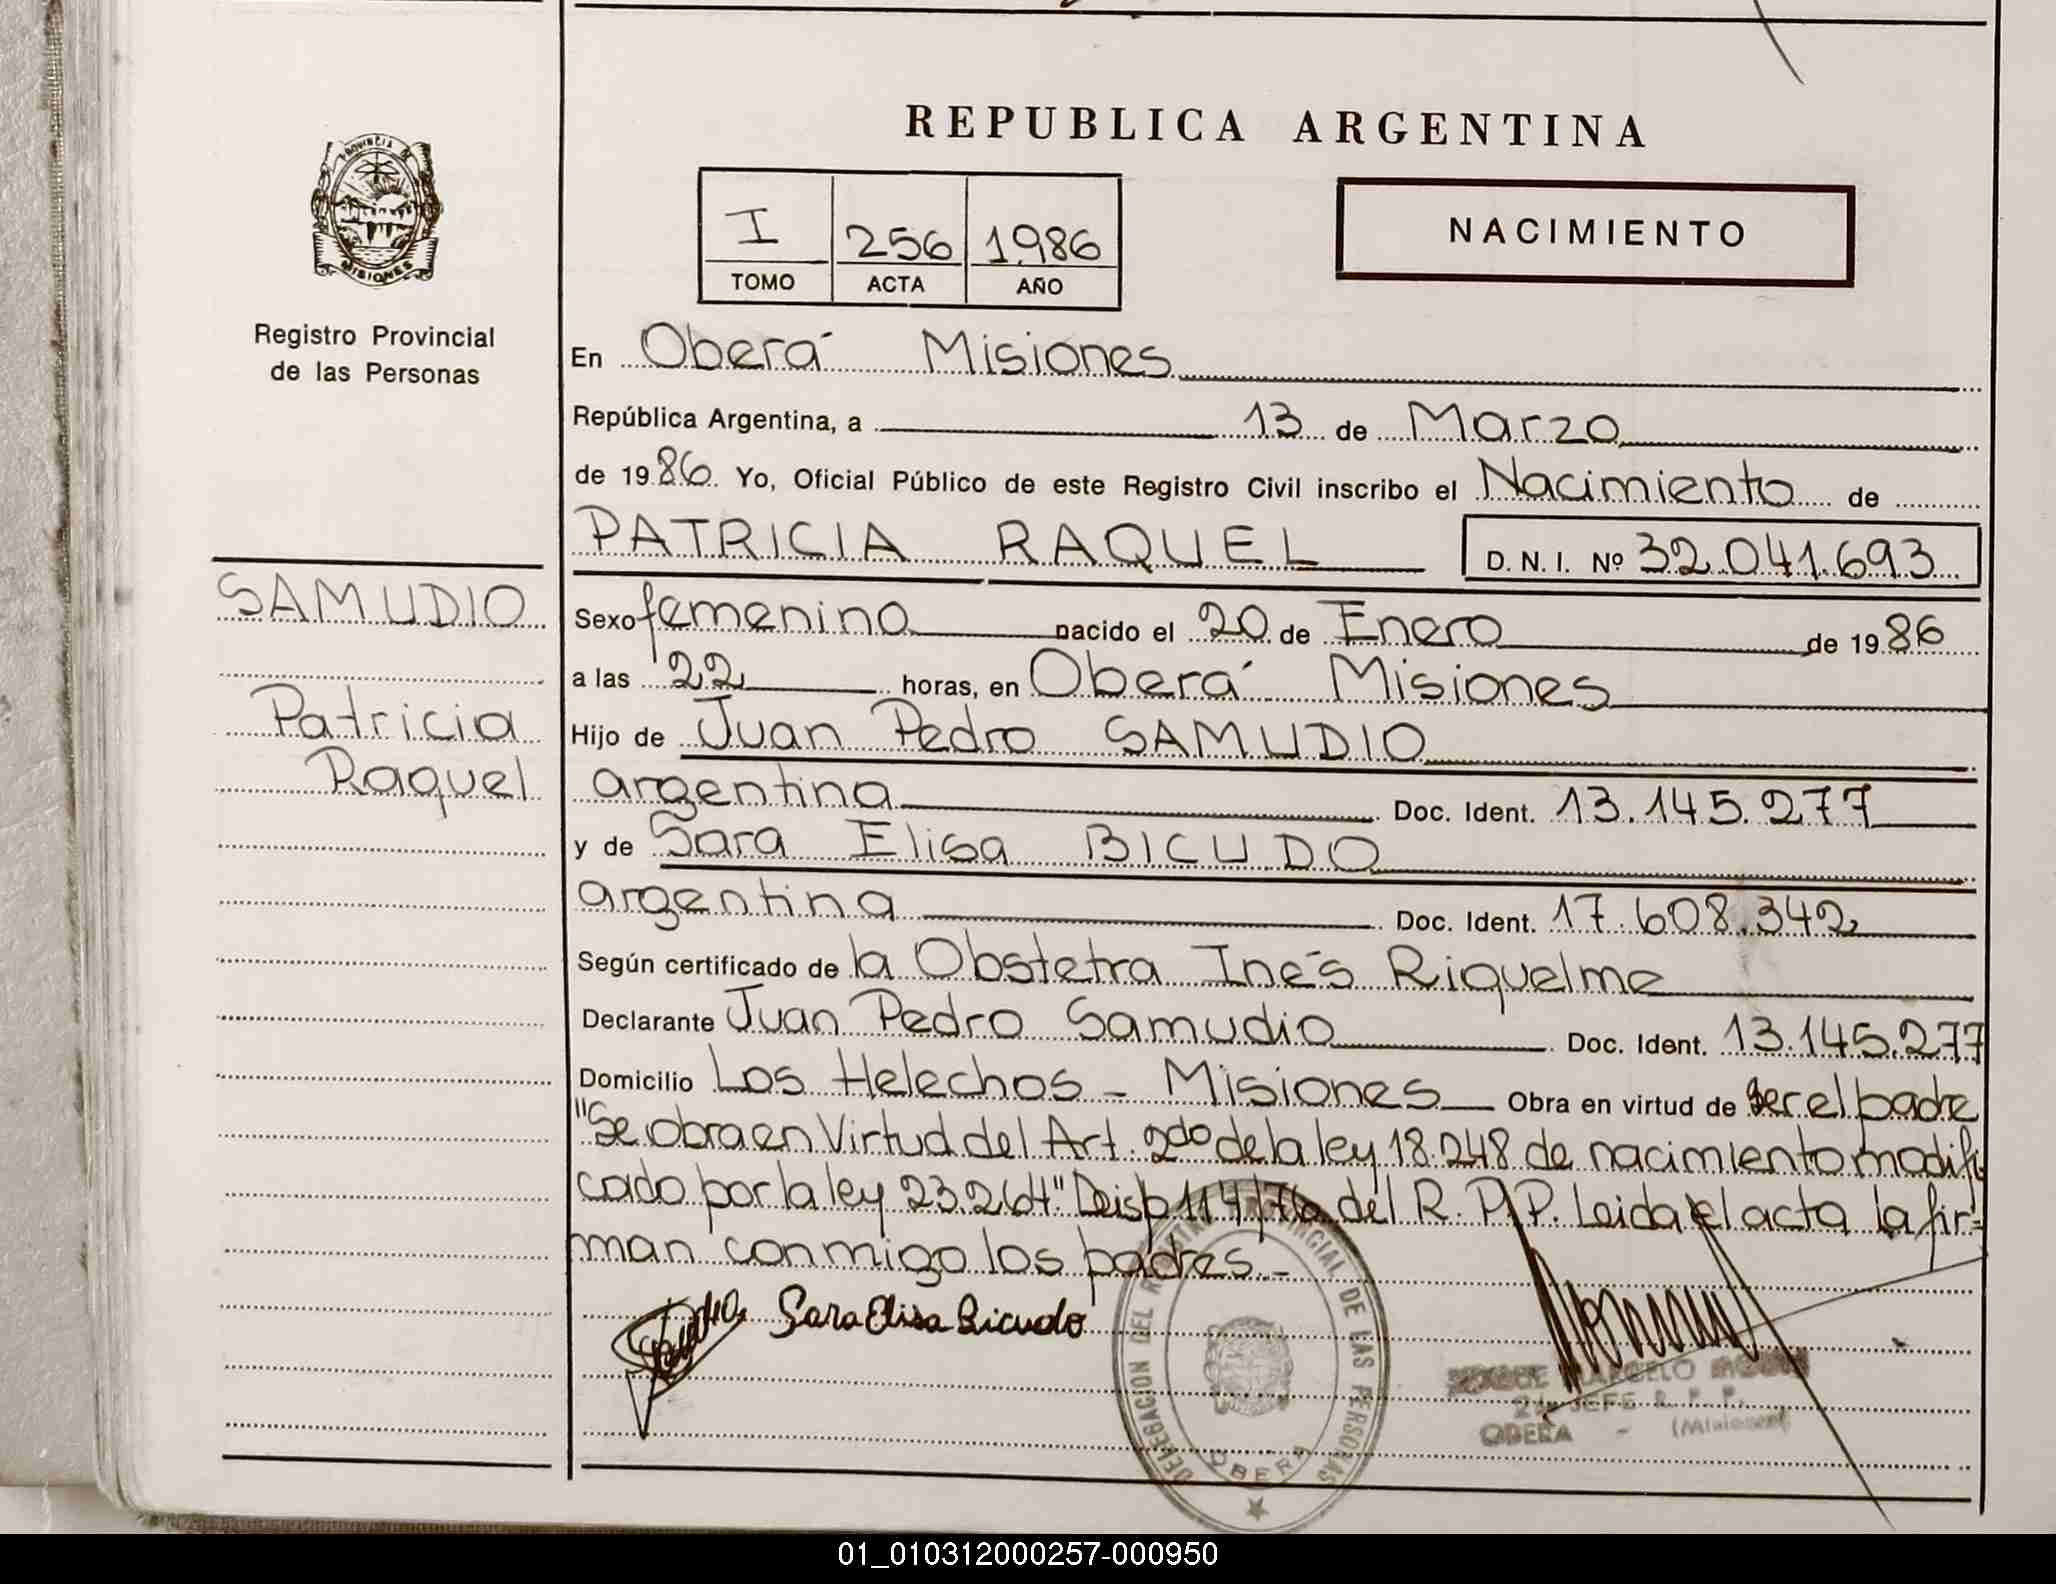 REPUBLICA ARGENTINA
PROVINCIA DE
MISIONES
Registro Provincial
de las Personas
I 256 1.986
TOMO ACTA AÑO
NACIMIENTO
En Oberá Misiones
República Argentina, a 13 de Marzo
de 1986. Yo, Oficial Público de este Registro Civil inscribo el Nacimiento de
PATRICIA RAQUEL D. N. I. Nº 32.041.693
SAMUDIO
Patricia
Raquel
Sexo femenino nacido el 20 de Enero de 1986
a las 22 horas, en Oberá Misiones
Hijo de Juan Pedro SAMUDIO
argentina Doc. Ident. 13.145.277
y de Sara Elisa BICUDO
argentina Doc. Ident. 17.608.342
Según certificado de la Obstetra Inés Riquelme
Declarante Juan Pedro Samudio Doc. Ident. 13.145.277
Domicilio Los Helechos - Misiones Obra en virtud de ser el padre
"Se obra en Virtud del Art. 2do de la ley 18.248 de nacimiento modifi
cado por la ley 23.264". Deisp 114/76 del R. P. P. Leida el acta la fir=
man conmigo los padres.-
Sara Elisa Bicudo
DELEGACION DEL REGISTRO PROVINCIAL DE LAS PERSONAS
OBERA
MARCELO
JEFE R. P. P.
OBERA - (Misiones)
01_010312000257-000950